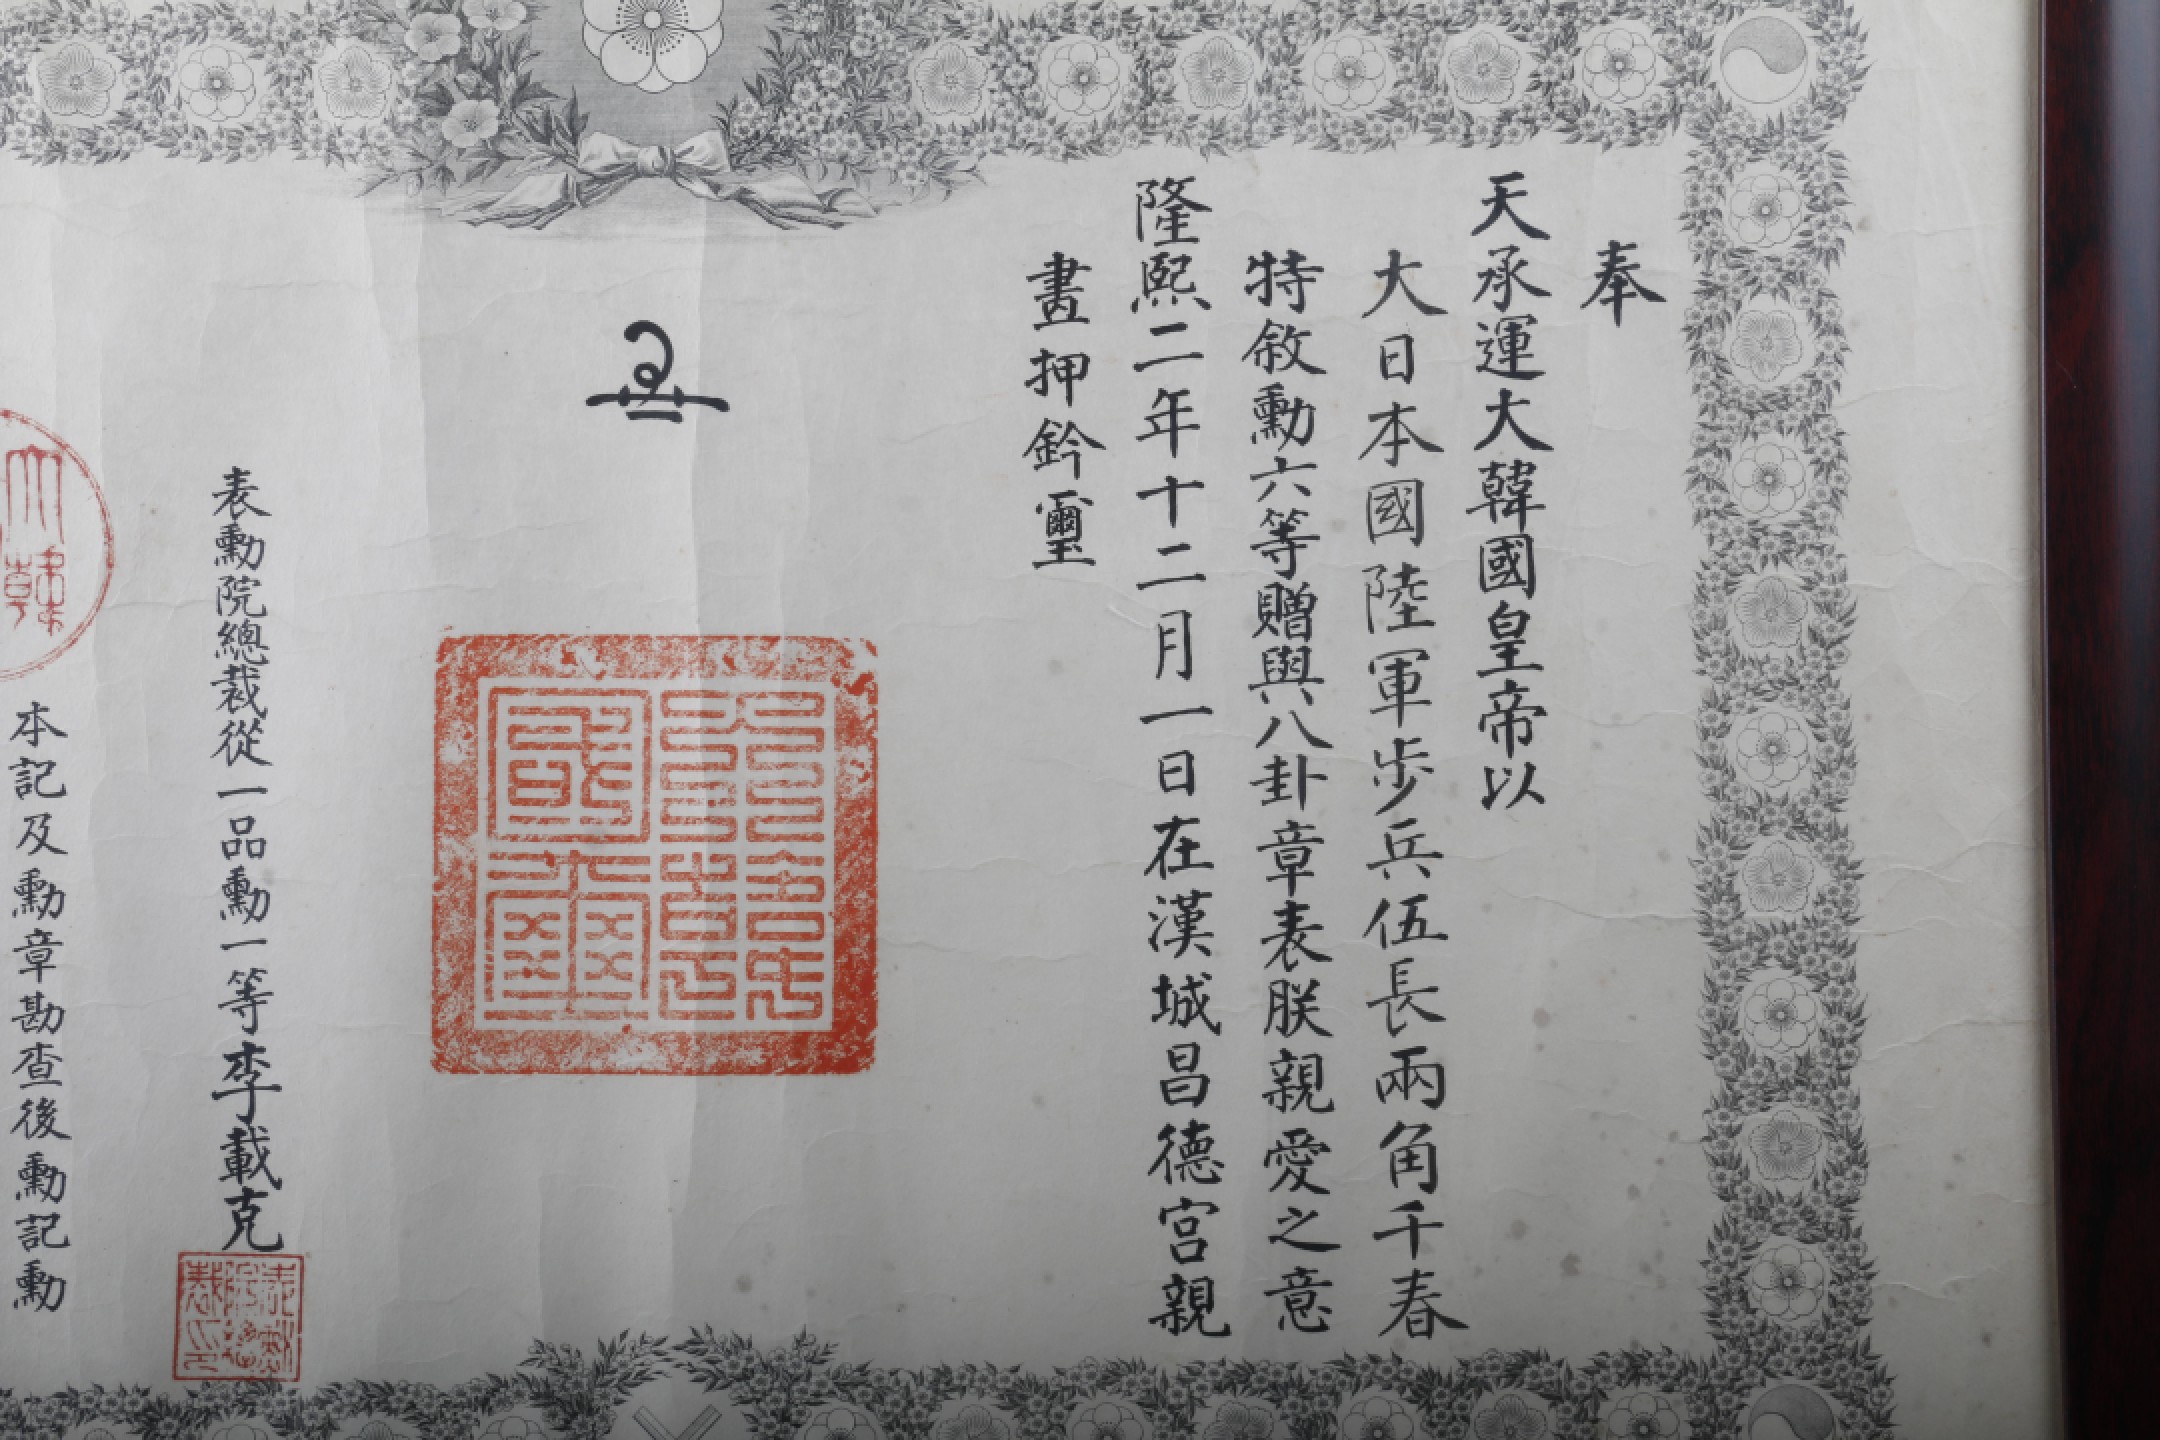 奉
天承運大韓國皇帝以
大日本國陸軍步兵伍長兩角千春
特敘勳六等贈與八卦章表朕親愛之意
隆熙二年十二月一日在漢城昌德宮親
畫押鈐璽
表勳院總裁從一品勳一等李載克
大韓
本記及勳章勘查後勳記勳